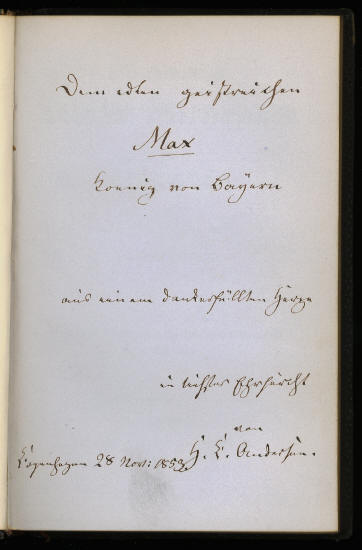 Dem edlen geistreichen
Max
Koenig von Bayern
aus einem dankerfüllten Herze
in tiefster Ehrfurcht
von
Kopenhagen 28 Nov: 1853. H. C. Andersen.